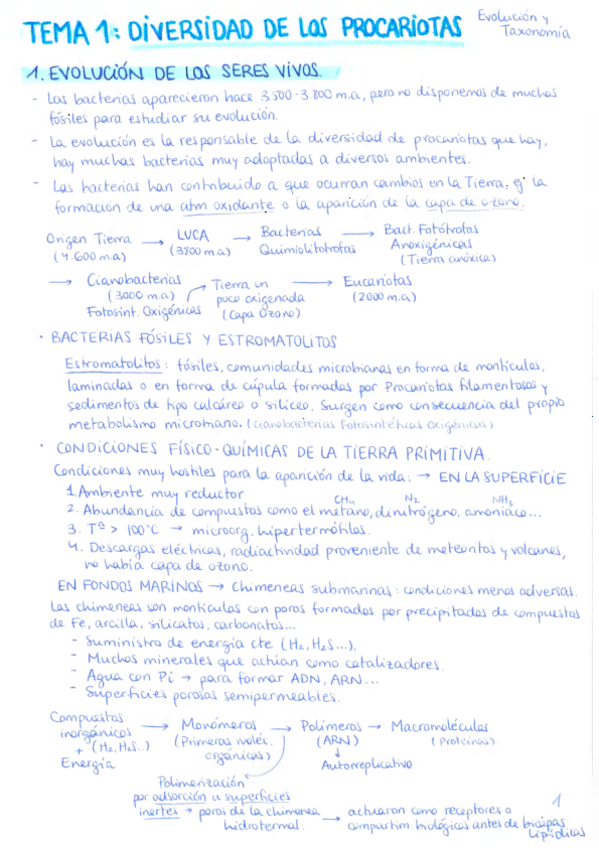 TEMA 1: DIVERSIDAD DE LOS PROCARIOTAS
Evolución y
Taxonomía
1. EVOLUCIÓN DE LOS SERES VIVOS.
- Las bacterias aparecieron hace 3500-3800 m.a, pero no disponemos de muchos
fósiles para estudiar su evolución.
- La evolución es la responsable de la diversidad de procariotas que hay,
hay muchas bacterias muy adaptadas a diversos ambientes.
- Las bacterias han contribuido a que ocurran cambios en la Tierra, ej la
formación de una atm oxidante o la aparición de la capa de ozono.
Origen Tierra → LUCA → Bacterias → Bact. Fotótrofas
(4.600 m.a) (3800 m.a) Quimiolitotrofas Anoxigénicas
(Tierra anóxica)
→ Cianobacterias Tierra un → Eucariotas
(3000 m.a) → poco oxigenada (2000 m.a)
Fotosint. Oxigénicas (Capa Ozono)
· BACTERIAS FÓSILES Y ESTROMATOLITOS
Estromatolitos: fósiles, comunidades microbianas en forma de montículos,
laminadas o en forma de cúpula formadas por Procariotas filamentosos y
sedimentos de tipo calcáreo o silíceo. Surgen como consecuencia del propio
metabolismo microbiano. (Cianobacterias fotosintéticas oxigénicas)
· CONDICIONES FÍSICO-QUÍMICAS DE LA TIERRA PRIMITIVA.
Condiciones muy hostiles para la aparición de la vida: → EN LA SUPERFICIE
1. Ambiente muy reductor
CH4 N2 NH3
2. Abundancia de compuestos como el metano, dinitrógeno, amoniaco...
3. Tª > 100°C → microorg. hipertermófilos.
4. Descargas eléctricas, radiactividad proveniente de meteoritos y volcanes,
no había capa de ozono.
EN FONDOS MARINOS → Chimeneas submarinas: condiciones menos adversas.
Las chimeneas son montículos con poros formados por precipitados de compuestos
de Fe, arcilla, silicatos, carbonatos...
- Suministro de energía cte (H2, H2S...).
- Muchos minerales que actúan como catalizadores.
- Agua con Pi → para formar ADN, ARN...
- Superficies porosas semipermeables.
Compuestos → Monómeros → Polímeros → Macromoléculas
inorgánicos (Primeras moléc. (ARN) (Proteínas)
+ (H2, H2S..) orgánicas) ↓
Energía Autorreplicativo
Polimerización
por adsorción a superficies
inertes → poros de la chimenea → actuaron como receptores o
hidrotermal. compartim. biológicos antes de bicapas
lipídicas
1